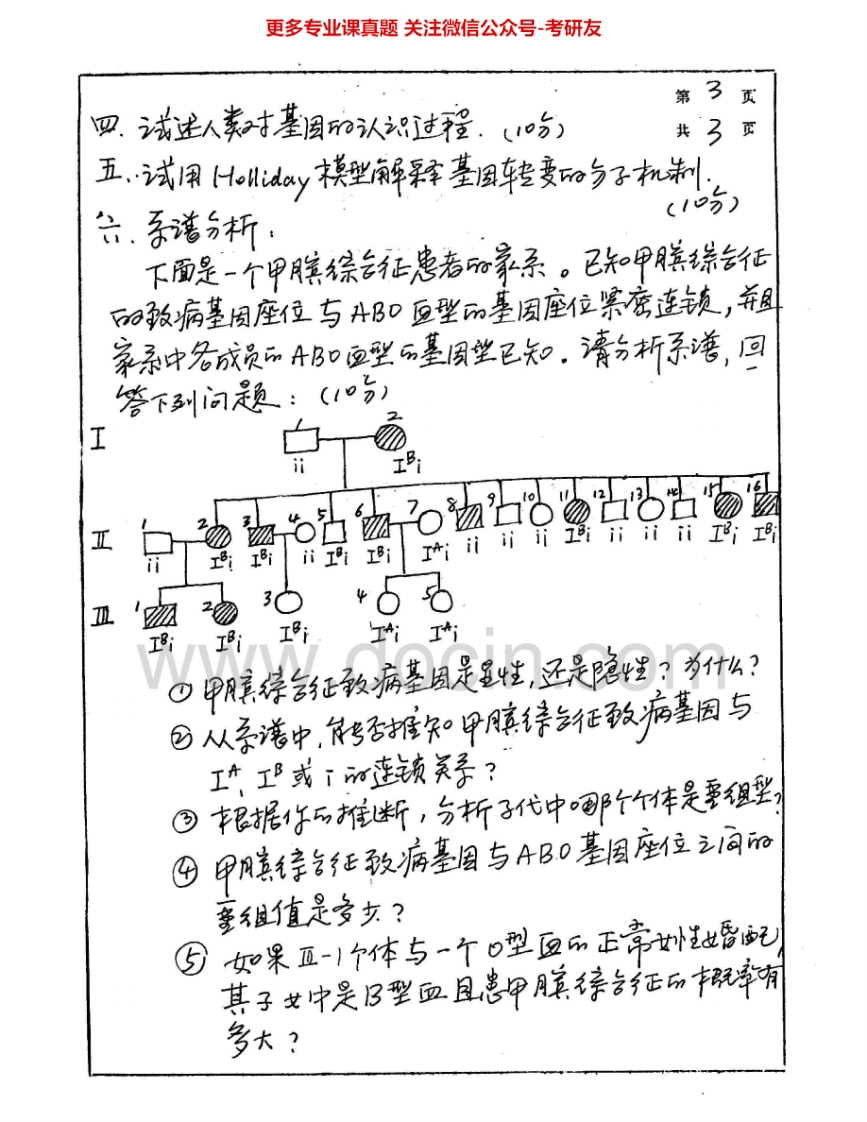 更多专业课真题 关注微信公众号-考研友
第 3 页
共 3 页
四. 试述人类对基因的认识过程. (10分)
五. 试用 Holliday 模型解释基因转变的分子机制.
(10分)
六. 系谱分析:
下面是一个甲膑综合征患者的家系。已知甲膑综合征
的致病基因座位与ABO血型的基因座位紧密连锁,并且
家系中各成员的ABO血型的基因型已知。请分析系谱,回
答下列问题: (10分)
I 1 2
ii I^B i
II 1 2 3 4 5 6 7 8 9 10 11 12 13 14 15 16
ii I^B i I^B i ii I^B i I^B i I^A i ii ii ii I^B i ii ii ii I^B i I^B i
III 1 2 3 4 5
I^B i I^B i I^B i I^A i I^A i
www.docin.com
① 甲膑综合征致病基因是显性,还是隐性?为什么?
② 从系谱中,能否推知甲膑综合征致病基因与
I^A、I^B 或 i 的连锁关系?
③ 根据你的推断,分析子代中哪个个体是重组型?
④ 甲膑综合征致病基因与ABO基因座位之间的
重组值是多少?
⑤ 如果 III-1个体与一个O型血的正常女性婚配,
其子女中是B型血且患甲膑综合征的概率有
多大?